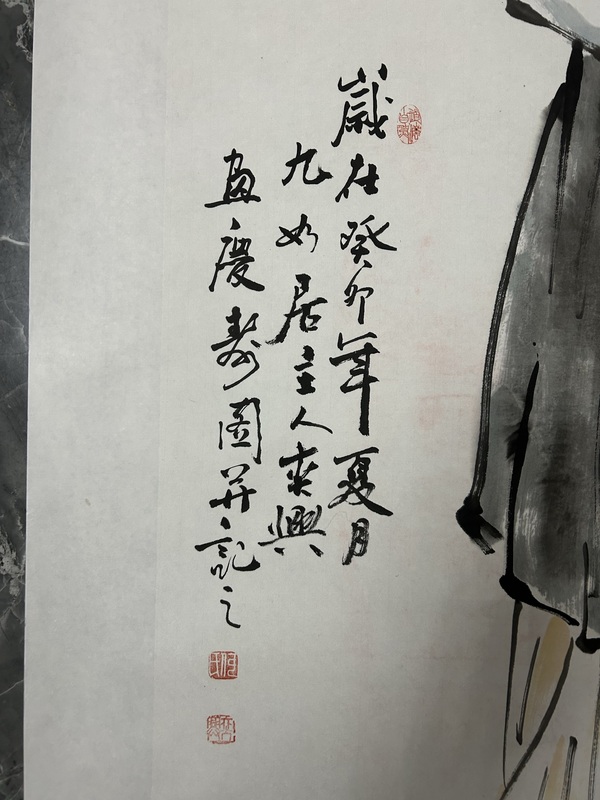 歲在癸卯年夏月
九如居主人奕興
畫慶壽圖並記之